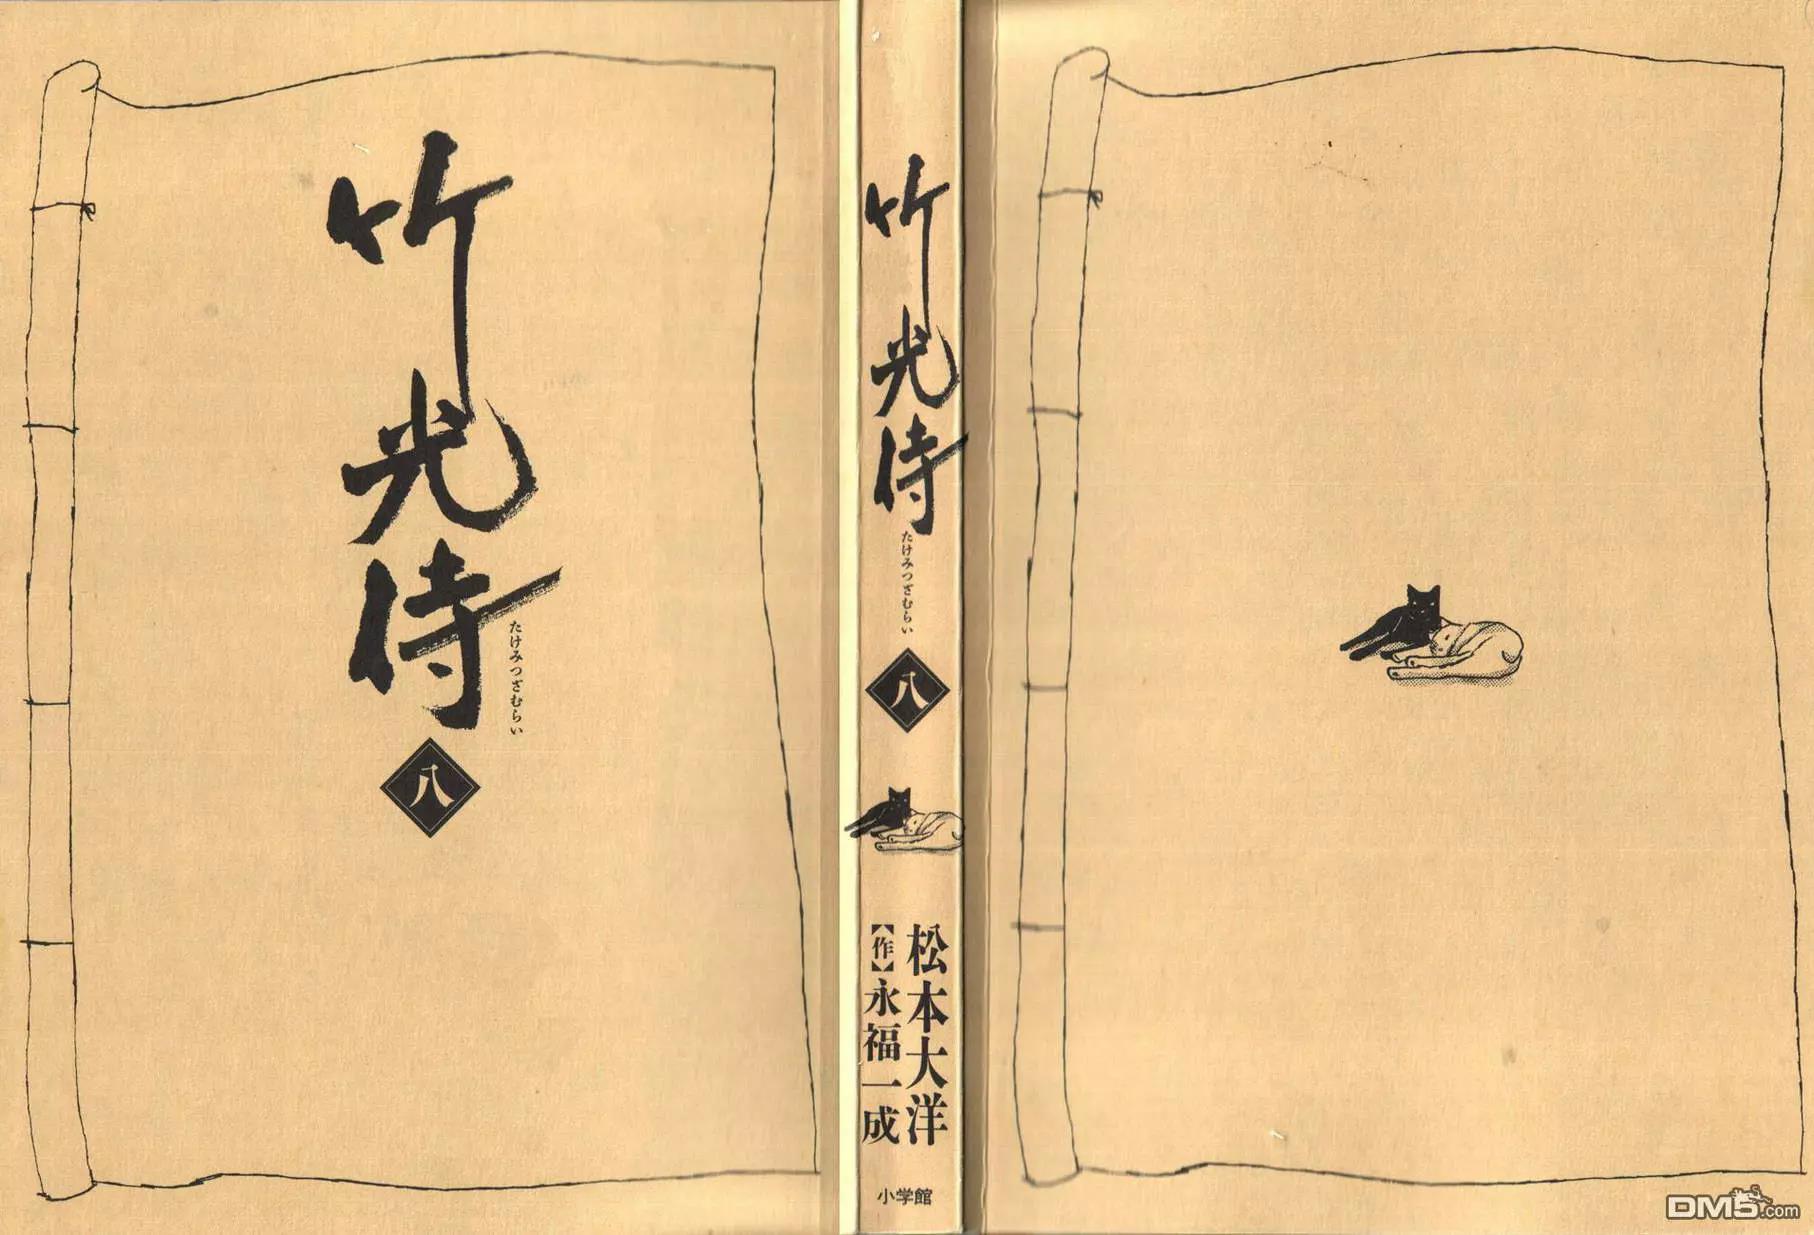 竹光侍
たけみつざむらい
八
竹光侍
たけみつざむらい
八
松本大洋
【作】永福一成
小学館
DM5.com